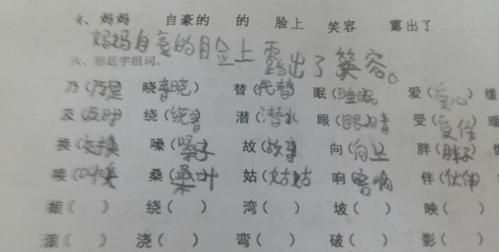 4、妈妈 自豪的 的 脸上 笑容 露出了
妈妈自豪的脸上露出了笑容。
六、形近字组词。
乃(乃是 晓(晓 替(代替) 眠(睡眠 爱(爱心) 缓
及(及时 绕(绕 潜(潜水 眼(眼睛 受(受伤
换(交换 嗓(嗓子 故(故事 向(向上 胖(胖子
唤(叫唤 桑(桑叶 姑(姑姑 响(影响 伴(伙伴
狼( ) 绕( ) 湾( ) 坡( ) 映( )
滚( ) 浇( ) 弯( ) 破( ) 影( )